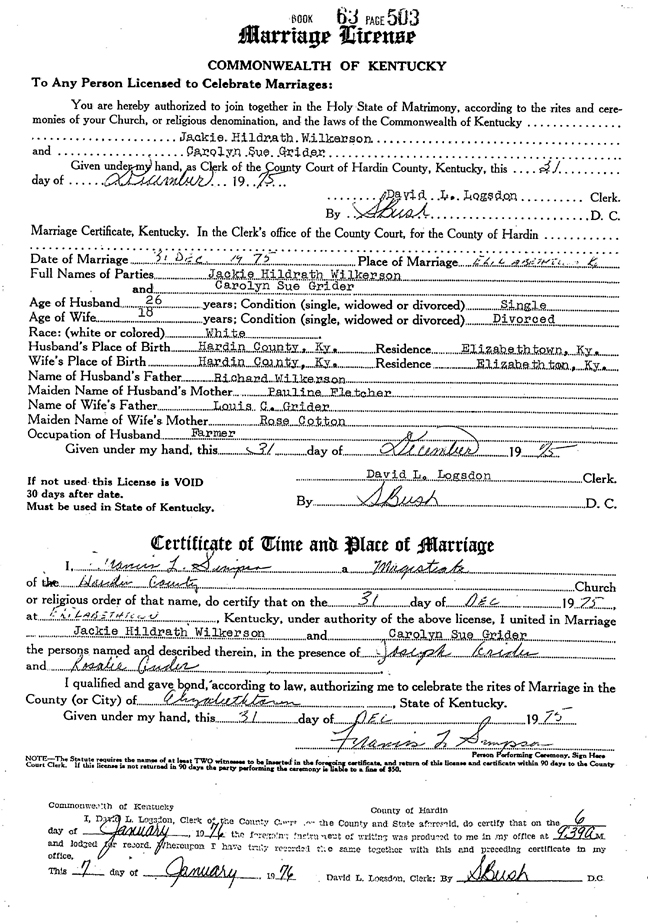 BOOK 63 PAGE 503
Marriage License
COMMONWEALTH OF KENTUCKY
To Any Person Licensed to Celebrate Marriages:
You are hereby authorized to join together in the Holy State of Matrimony, according to the rites and cere-
monies of your Church, or religious denomination, and the laws of the Commonwealth of Kentucky
Jackie Hildrath Wilkerson
and Carolyn Sue Grider
Given under my hand, as Clerk of the County Court of Hardin County, Kentucky, this 31
day of December 19 75
David L. Logsdon Clerk.
By SBush D. C.
Marriage Certificate, Kentucky. In the Clerk's office of the County Court, for the County of Hardin
Date of Marriage 31 DEC 1975 Place of Marriage
Full Names of Parties Jackie Hildrath Wilkerson
and Carolyn Sue Grider
Age of Husband 26 years; Condition (single, widowed or divorced) Single
Age of Wife 18 years; Condition (single, widowed or divorced) Divorced
Race: (white or colored) White
Husband's Place of Birth Hardin County, Ky. Residence Elizabethtown, Ky.
Wife's Place of Birth Hardin County, Ky. Residence Elizabethton, Ky.
Name of Husband's Father Richard Wilkerson
Maiden Name of Husband's Mother Pauline Fletcher
Name of Wife's Father Louis C. Grider
Maiden Name of Wife's Mother Rose Cotton
Occupation of Husband Farmer
Given under my hand, this 31 day of December 19 75
David L. Logsdon Clerk.
If not used this License is VOID
30 days after date.
Must be used in State of Kentucky.
By SBush D. C.
Certificate of Time and Place of Marriage
I, Francis L Simpson a Magistrate
of the Hardin County Church
or religious order of that name, do certify that on the 31 day of DEC 1975,
at , Kentucky, under authority of the above license, I united in Marriage
Jackie Hildrath Wilkerson and Carolyn Sue Grider
the persons named and described therein, in the presence of Joseph Grider
and Rosalie Grider
I qualified and gave bond, according to law, authorizing me to celebrate the rites of Marriage in the
County (or City) of Elizabethtown, State of Kentucky.
Given under my hand, this 31 day of DEC 1975
Francis L Simpson
Person Performing Ceremony, Sign Here
NOTE—The Statute requires the names of at least TWO witnesses to be inserted in the foregoing certificate, and return of this license and certificate within 90 days to the County
Court Clerk. If this license is not returned in 90 days the party performing the ceremony is liable to a fine of $50.
Commonwealth of Kentucky County of Hardin
I, David L. Logsdon, Clerk of the County Court for the County and State aforesaid, do certify that on the 6
day of January, 1976 the foregoing instrument of writing was produced to me in my office at 9:39A M.
and lodged for record. Whereupon I have truly recorded the same together with this and preceding certificate in my
office.
This 7 day of January 1976 David L. Logsdon, Clerk: By SBush D.C.